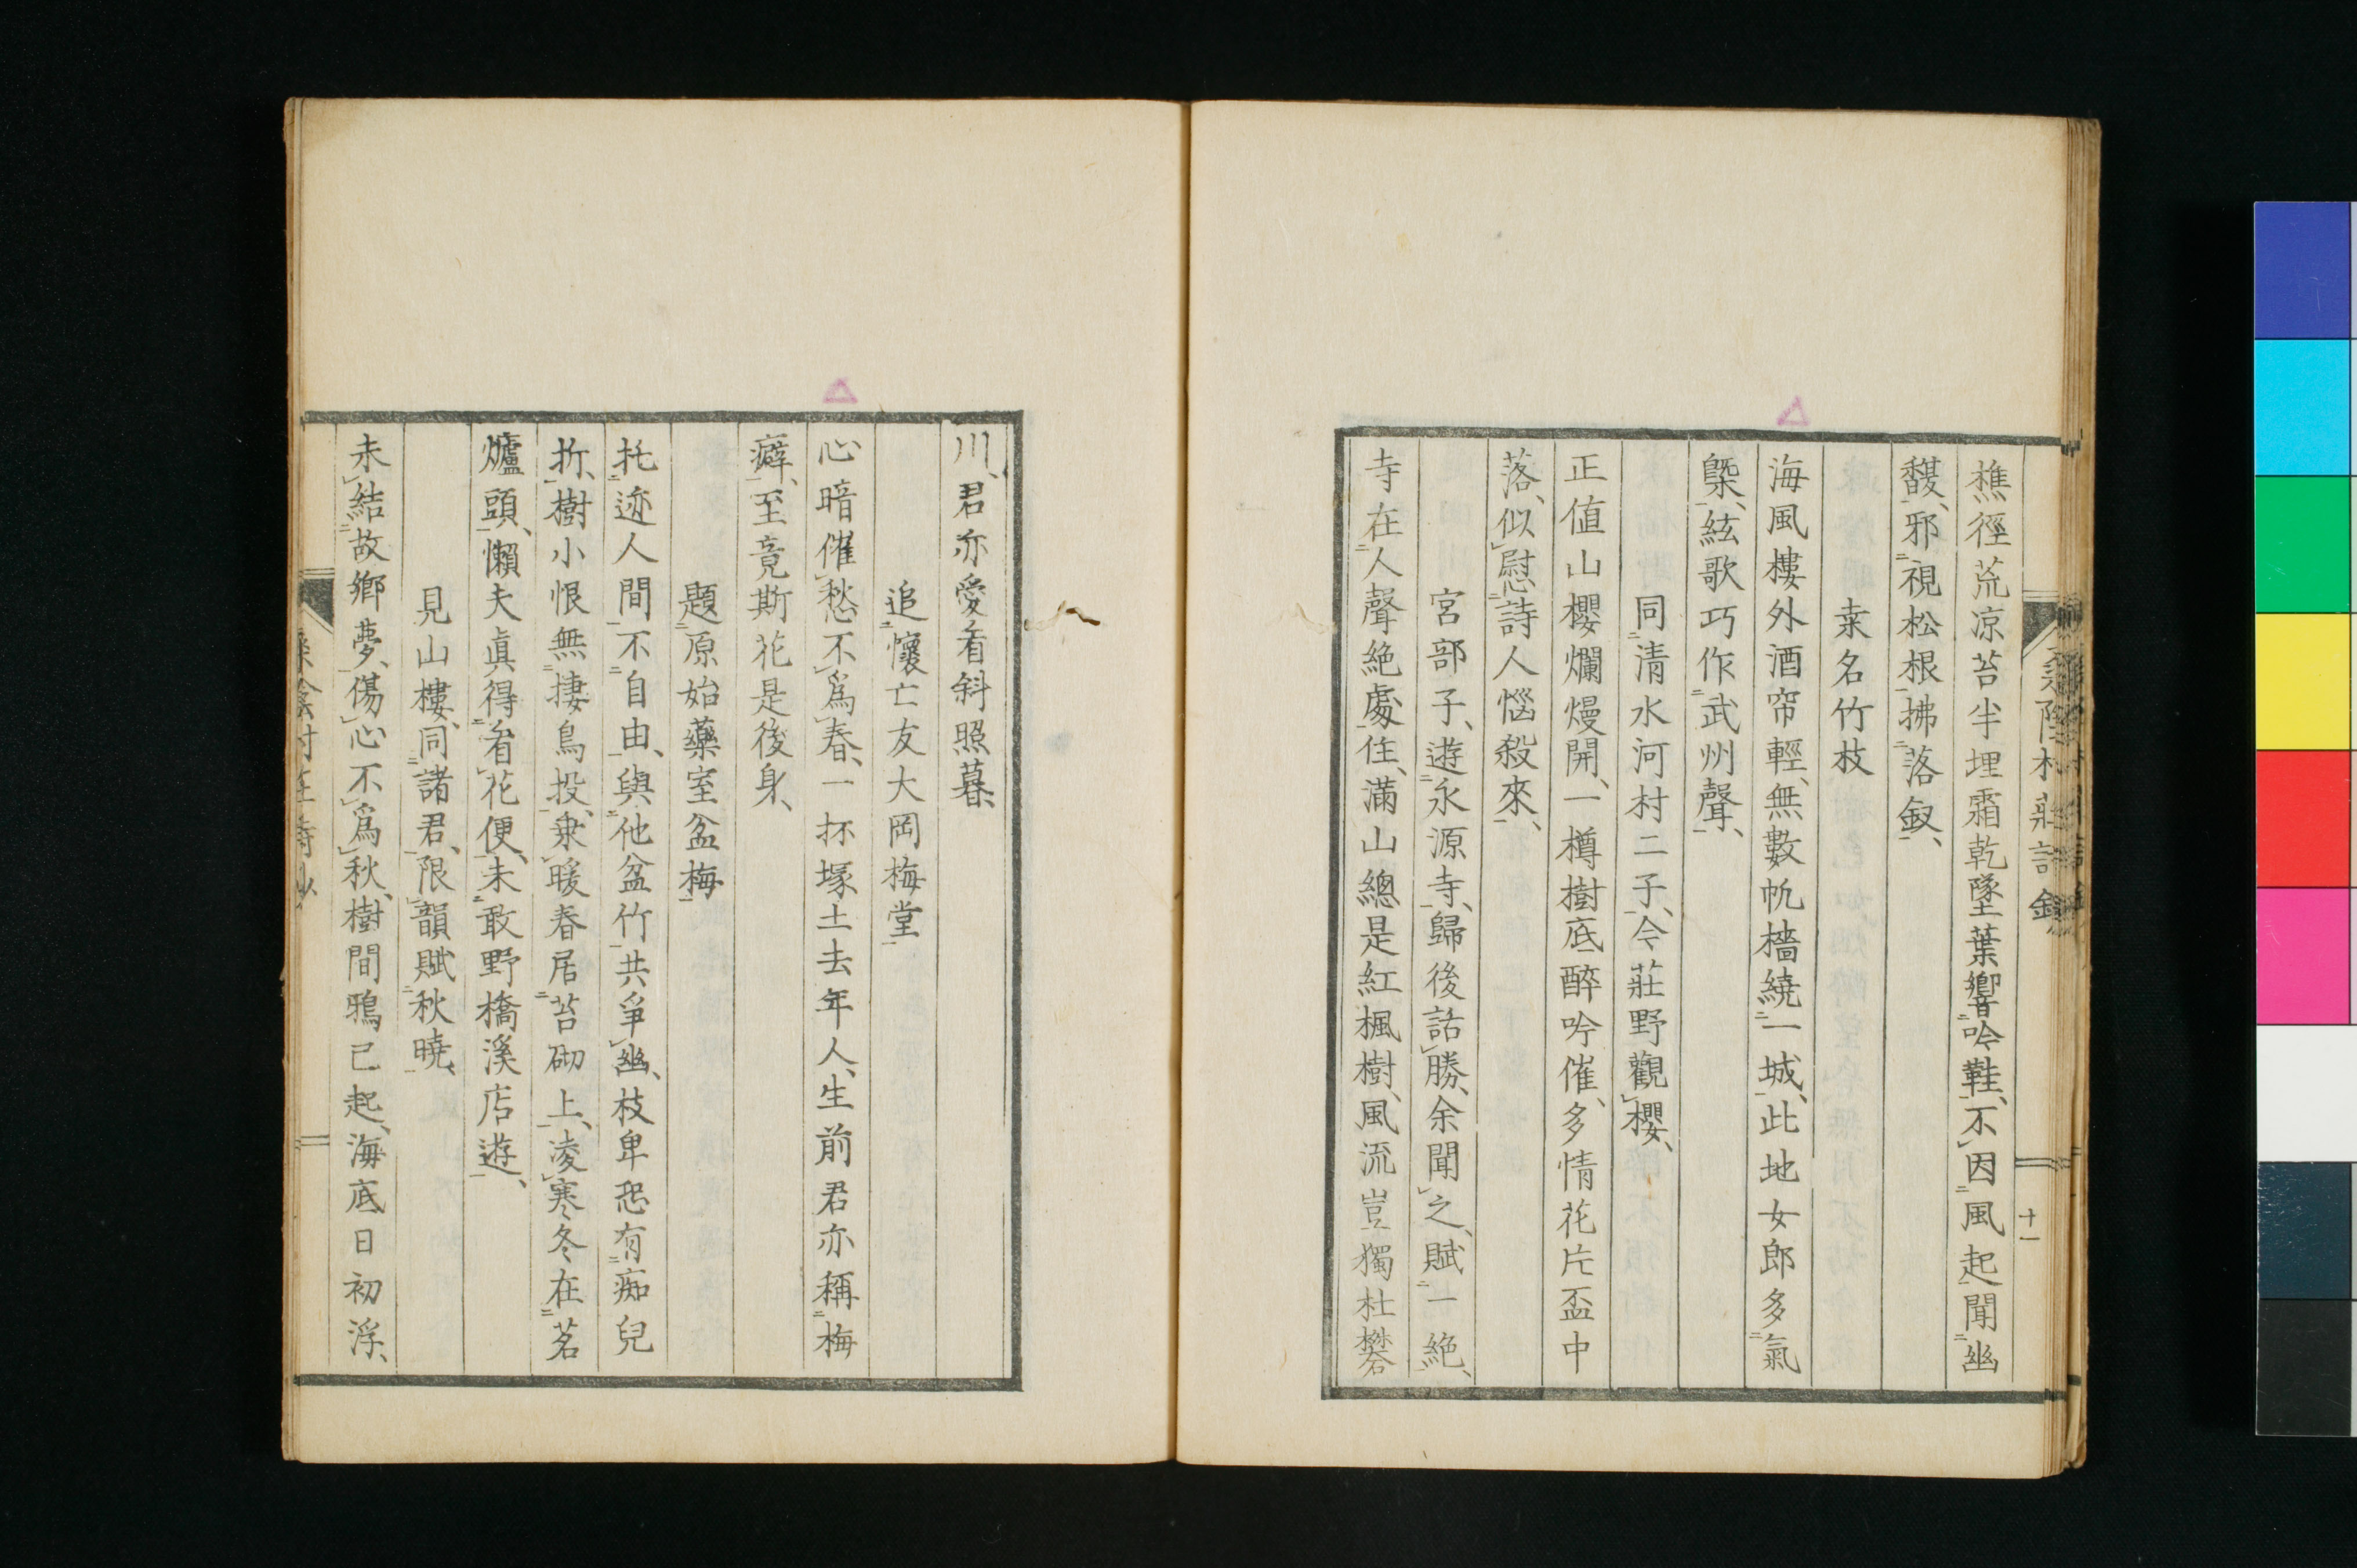 樵徑荒凉苔半埋、霜乾墜葉響吟鞋、不因風起聞幽
馥、邪視松根拂落釵、
桒名竹枝
海風樓外酒帘輕、無數帆檣繞一城、此地女郎多氣
槩、絃歌巧作武州聲、
同清水河村二子、今莊野觀櫻、
正值山櫻爛熳開、一樽樹底醉吟催、多情花片盃中
落、似慰詩人惱殺來、
宮部子、遊永源寺、歸後話勝、余聞之、賦一絶、
寺在人聲絶處住、滿山總是紅楓樹、風流豈獨杜樊
川、君亦愛看斜照暮、
追懷亡友大岡梅堂
心暗催愁不爲春、一抔塚土去年人、生前君亦稱梅
癖、至竟斯花是後身、
題原始藥室盆梅
托迹人間不自由、與他盆竹共爭幽、枝卑恐有痴兒
折、樹小恨無捿鳥投、乘暖春居苔砌上、凌寒冬在茗
爐頭、懶夫眞得看花便、未敢野橋溪店遊、
見山樓、同諸君、限韻賦秋曉、
未結故鄉夢、傷心不爲秋、樹間鴉已起、海底日初浮、
十一